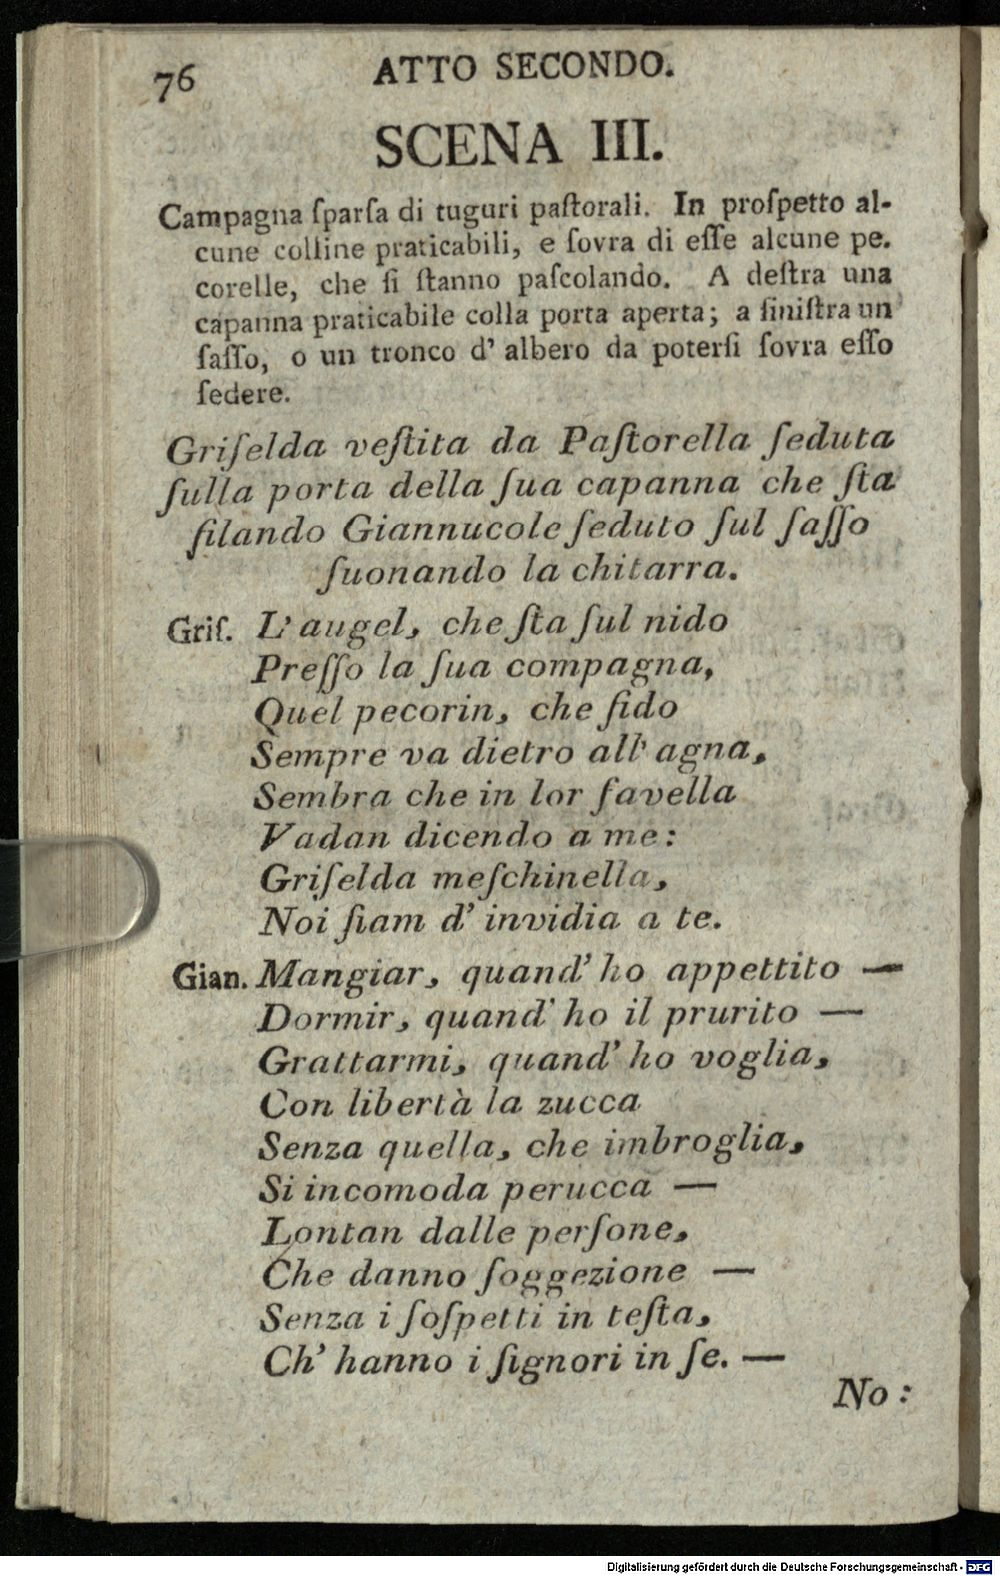 76
ATTO SECONDO.
SCENA III.
Campagna ſparſa di tuguri paſtorali. In proſpetto al-
cune colline praticabili, e ſovra di eſſe alcune pe.
corelle, che ſi ſtanno paſcolando. A deſtra una
capanna praticabile colla porta aperta; a ſiniſtra un
ſaſſo, o un tronco d' albero da poterſi ſovra eſſo
ſedere.
Griſelda veſtita da Paſtorella ſeduta
ſulla porta della ſua capanna che ſta
filando Giannucole ſeduto ſul ſaſſo
ſuonando la chitarra.
Griſ. L' augel, che ſta ſul nido
Preſſo la ſua compagna,
Quel pecorin, che fido
Sempre va dietro all' agna,
Sembra che in lor favella
Vadan dicendo a me:
Griſelda meſchinella,
Noi ſiam d' invidia a te.
Gian. Mangiar, quand' ho appettito —
Dormir, quand' ho il prurito —
Grattarmi, quand' ho voglia,
Con libertà la zucca
Senza quella, che imbroglia,
Si incomoda perucca —
Lontan dalle perſone,
Che danno ſoggezione —
Senza i ſoſpetti in teſta,
Ch' hanno i ſignori in ſe. —
No:
Digitalisierung gefördert durch die Deutsche Forschungsgemeinschaft - DFG